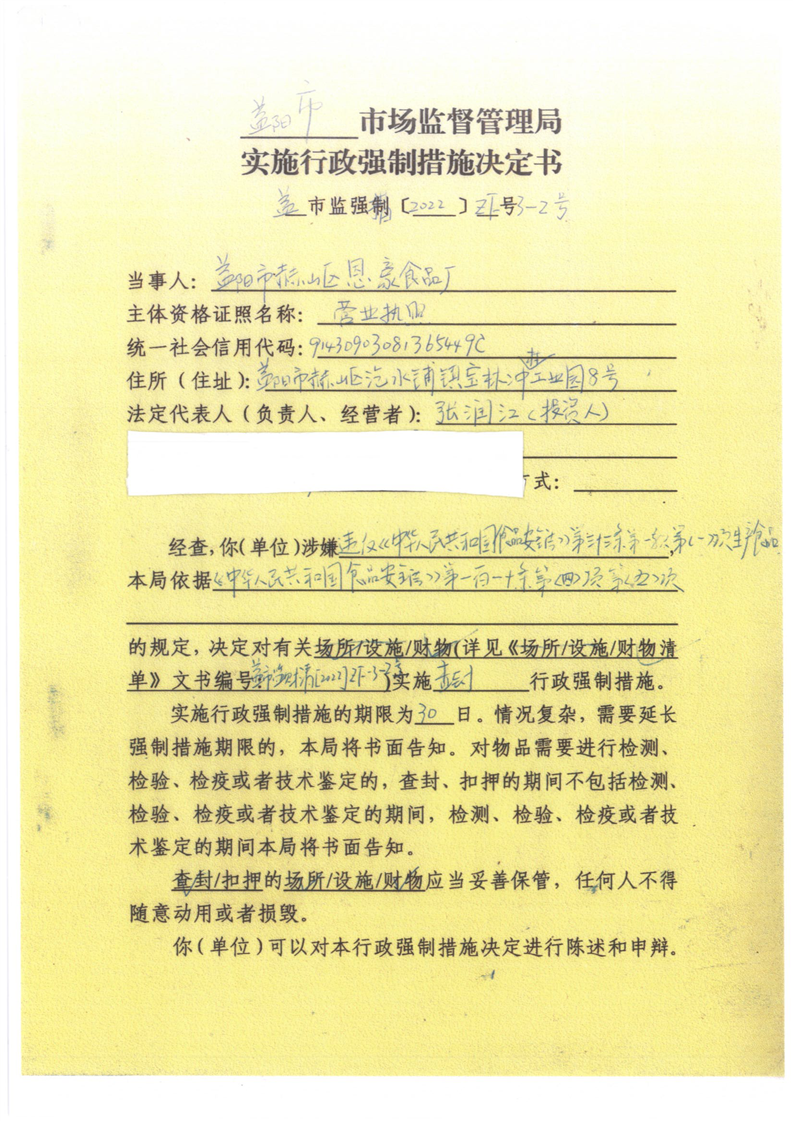 益阳市市场监督管理局
实施行政强制措施决定书
益市监强制〔2022〕ZF号3-2号
当事人：益阳市赫山区恩豪食品厂
主体资格证照名称：营业执照
统一社会信用代码：91430903081365449C
住所（住址）：益阳市赫山区沧水铺镇宝林冲村工业园8号
法定代表人（负责人、经营者）：张润江（投资人）
方式：
经查，你（单位）涉嫌违反《中华人民共和国食品安全法》第三十三条第一款第（一）项生产食品，
本局依据《中华人民共和国食品安全法》第一百一十条第（四）项第（五）项
的规定，决定对有关场所/设施/财物（详见《场所/设施/财物清
单》文书编号[2022]ZF-3-2号）实施查封行政强制措施。
实施行政强制措施的期限为30日。情况复杂，需要延长
强制措施期限的，本局将书面告知。对物品需要进行检测、
检验、检疫或者技术鉴定的，查封、扣押的期间不包括检测、
检验、检疫或者技术鉴定的期间，检测、检验、检疫或者技
术鉴定的期间本局将书面告知。
查封/扣押的场所/设施/财物应当妥善保管，任何人不得
随意动用或者损毁。
你（单位）可以对本行政强制措施决定进行陈述和申辩。